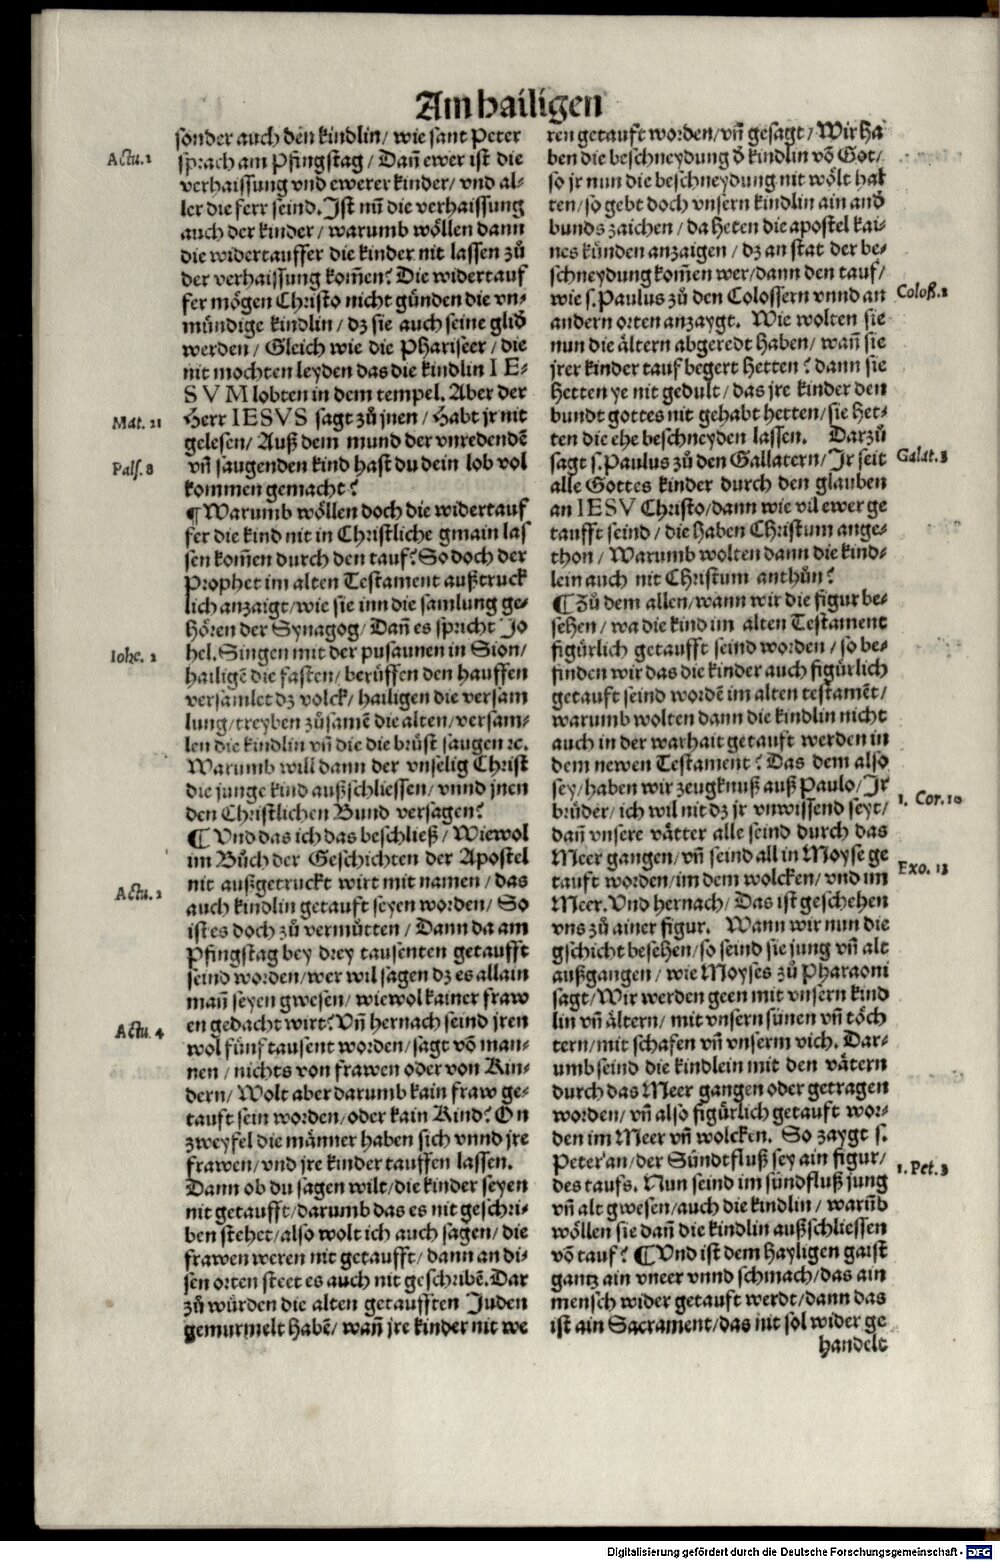 Am hailigen
sonder auch den kindlin/ wie sant Peter
Actu. 2
sprach am Pfingstag/ Dañ ewer ist die
verhaissung vnd ewerer kinder/ vnd al-
ler die ferr seind. Jst nũ die verhaissung
auch der kinder/ warumb wöllen dann
die widertauffer die kinder nit lassen zů
der verhaissung kom̃en? Die widertauf
fer mögen Christo nicht günden die vn-
mündige kindlin/ dz sie auch seine glid̕
werden/ Gleich wie die Phariseer/ die
nit mochten leyden das die kindlin IE-
SVM lobten in dem tempel. Aber der
Mat. 21
Herr IESVS sagt zů jnen/ Habt jr nit
gelesen/ Auß dem mund der vnredendẽ
Psal. 8
vñ saugenden kind hast du dein lob vol
kommen gemacht?
¶ Warumb wöllen doch die widertauf
fer die kind nit in Christliche gmain las
sen kom̃en durch den tauf? So doch der
Prophet im alten Testament außtruck
lich anzaigt/ wie sie inn die samlung ge-
hören der Synagog/ Dañ es spricht Jo
Iohe. 2
hel. Singen mit der pusaunen in Sion/
hailigẽ die fasten/ berüffen den hauffen
versamlet dz volck/ hailigen die versam
lung/ treyben zůsamẽ die alten/ versam-
len die kindlin vñ die die brüst saugen ꝛc.
Warumb will dann der vnselig Christ
die junge kind außschliessen/ vnnd jnen
den Christlichen Bund versagen?
¶ Vnd das ich das beschließ/ Wiewol
im Bůch der Geschichten der Apostel
nit außgetruckt wirt mit namen/ das
Actu. 2
auch kindlin getauft seyen worden/ So
ist es doch zů vermütten/ Dann da am
Pfingstag bey drey tausenten getaufft
seind worden/ wer wil sagen dz es allain
mañ seyen gwesen/ wiewol kainer fraw
en gedacht wirt? Vñ hernach seind jren
Actu. 4
wol fünf tausent worden/ sagt võ man-
nen/ nichts von frawen oder von Kin-
dern/ Wolt aber darumb kain fraw ge-
tauft sein worden/ oder kain Kind? On
zweyfel die männer haben sich vnnd jre
frawen/ vnd jre kinder tauffen lassen.
Dann ob du sagen wilt/ die kinder seyen
nit getaufft/ darumb das es nit geschri-
ben stehet/ also wolt ich auch sagen/ die
frawen weren nit getaufft/ dann an di-
sen orten steet es auch nit geschribẽ. Dar
zů würden die alten getaufften Juden
gemurmelt habẽ/ wañ jre kinder nit we
ren getauft worden/ vñ gesagt/ Wir ha
ben die beschneydung d̕ kindlin võ Got/
so jr nun die beschneydung nit wölt hal
ten/ so gebt doch vnsern kindlin ain and̕
bunds zaichen/ da heten die apostel kai-
nes künden anzaigen/ dz an stat der be-
schneydung kom̃en wer/ dann den tauf/
Coloß. 2
wie s. Paulus zů den Colossern vnnd an
andern orten anzaygt. Wie wolten sie
nun die ältern abgeredt haben/ wañ sie
jrer kinder tauf begert hetten? dann sie
hetten ye nit gedult/ das jre kinder den
bundt gottes nit gehabt hetten/ sie het-
ten die ehe beschneyden lassen. Darzů
Galat. 3
sagt s. Paulus zů den Gallatern/ Jr seit
alle Gottes kinder durch den glauben
an IESV Christo/ dann wie vil ewer ge
taufft seind/ die haben Christum ange-
thon/ Warumb wolten dann die kind-
lein auch nit Christum anthůn?
¶ Zů dem allen/ wann wir die figur be-
sehen/ wa die kind im alten Testament
figürlich getaufft seind worden/ so be-
finden wir das die kinder auch figürlich
getauft seind wordẽ im alten testamẽt/
warumb wolten dann die kindlin nicht
auch in der warhait getauft werden in
dem newen Testament? Das dem also
sey/ haben wir zeugknuß auß Paulo/ Jr
1. Cor. 10
brüder/ ich wil nit dz jr vnwissend seyt/
dañ vnsere vätter alle seind durch das
Meer gangen/ vñ seind all in Moyse ge
Exo. 13
tauft worden/ im dem wolcken/ vnd im
Meer. Vnd hernach/ Das ist geschehen
vns zů ainer figur. Wann wir nun die
gschicht besehen/ so seind sie jung vñ alt
außgangen/ wie Moyses zů Pharaoni
sagt/ Wir werden geen mit vnsern kind
lin vñ ältern/ mit vnsern sünen vñ töch
tern/ mit schafen vñ vnserm vich. Dar-
umb seind die kindlein mit den vätern
durch das Meer gangen oder getragen
worden/ vñ also figürlich getauft wor-
den im Meer vñ wolcken. So zaygt s.
1. Pet. 3
Peter an/ der Sündtfluß sey ain figur/
des taufs. Nun seind im sündfluß jung
vñ alt gwesen/ auch die kindlin/ warũb
wöllen sie dañ die kindlin außschliessen
võ tauf? ¶ Vnd ist dem hayligen gaist
gantz ain vneer vnnd schmach/ das ain
mensch wider getauft werdt/ dann das
ist ain Sacrament/ das nit sol wider ge
handelt
Digitalisierung gefördert durch die Deutsche Forschungsgemeinschaft - DFG